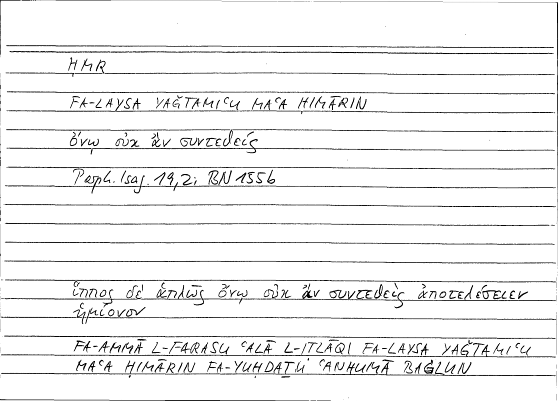 ḤMR
FA-LAYSA YAǦTAMIʿU MAʿA ḤIMĀRIN
ὄνῳ οὐκ ἂν συντεθείς
Porph. Isag. 19,2; BN 1556
ἵππος δὲ ἁπλῶς ὄνῳ οὐκ ἂν συντεθεὶς ἀποτελέσειεν
ἡμίονον
FA-AMMĀ L-FARASU ʿALĀ L-ITLĀQI FA-LAYSA YAǦTAMIʿU
MAʿA ḤIMĀRIN FA-YUḤDAṮU ʿANHUMĀ BAĠLUN